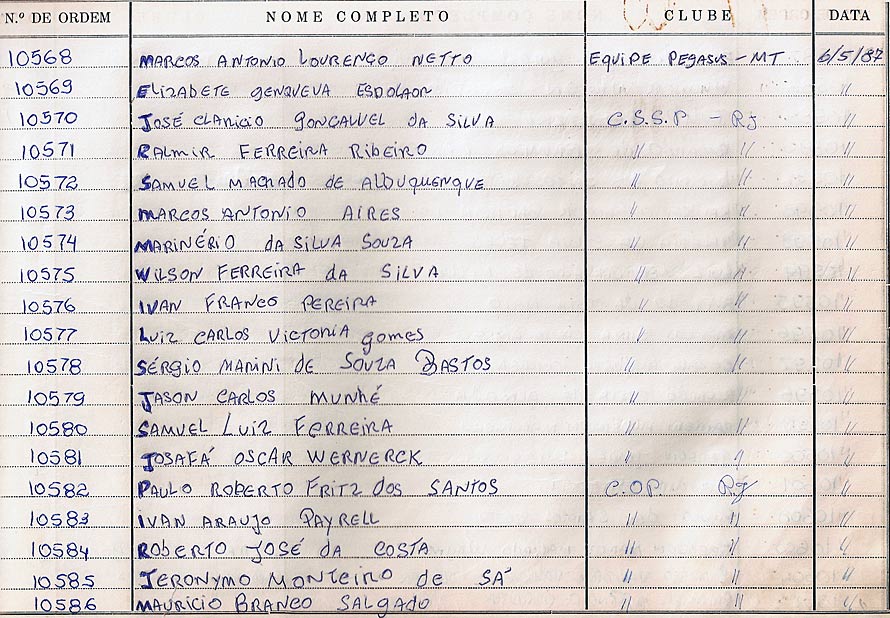 N.º DE ORDEM NOME COMPLETO CLUBE DATA
10568 MARCOS ANTONIO LOURENÇO NETTO EQUIPE PEGASUS - MT 6/5/87
10569 ELIZABETE GENOVEVA ESDOLAOR "
10570 JOSÉ CLARICIO GONÇALVEL da SILVA C.S.S.P - RJ "
10571 RALMIR FERREIRA RIBEIRO " " "
10572 SAMUEL MACHADO de ALBUQUERQUE " " "
10573 MARCOS ANTONIO AIRES " " "
10574 MARINÉRIO da SILVA SOUZA " " "
10575 WILSON FERREIRA da SILVA " " "
10576 IVAN FRANCO PEREIRA " " "
10577 LUIZ CARLOS VICTORIA gomes " " "
10578 SÉRGIO MARINI DE SOUZA BASTOS " " "
10579 JASON CARLOS MUNHÉ " " "
10580 SAMUEL LUIZ FERREIRA " " "
10581 JOSAFÁ OSCAR WERNERCK " " "
10582 PAULO ROBERTO FRITZ dos SANTOS C.OP. RJ "
10583 IVAN ARAUJO PAYRELL " " "
10584 ROBERTO JOSÉ da COSTA " " "
10585 JERONYMO MONTEIRO de SÁ " " "
10586 MAURICIO BRANCO SALGADO " " "